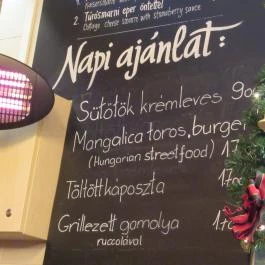 2. Túrósmarni eper öntettel
Cottage cheese szmarni with strawberry sauce
Napi ajánlat:
Sütőtök krémleves 90
Mangalica toros, burger
(Hungarian streetfood) 17
Töltött káposzta 170
Grillezett gomolya 170
ruccolával